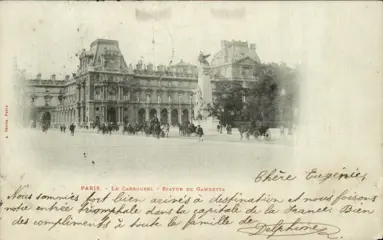 PARIS. - Le Carrousel. - Statue de Gambetta
Chère Eugénie,
Nous sommes fort bien arrivés à destination et nous faisons
notre entrée triomphale dans la capitale de la France. Bien
des compliments à toute la famille de
Delphine